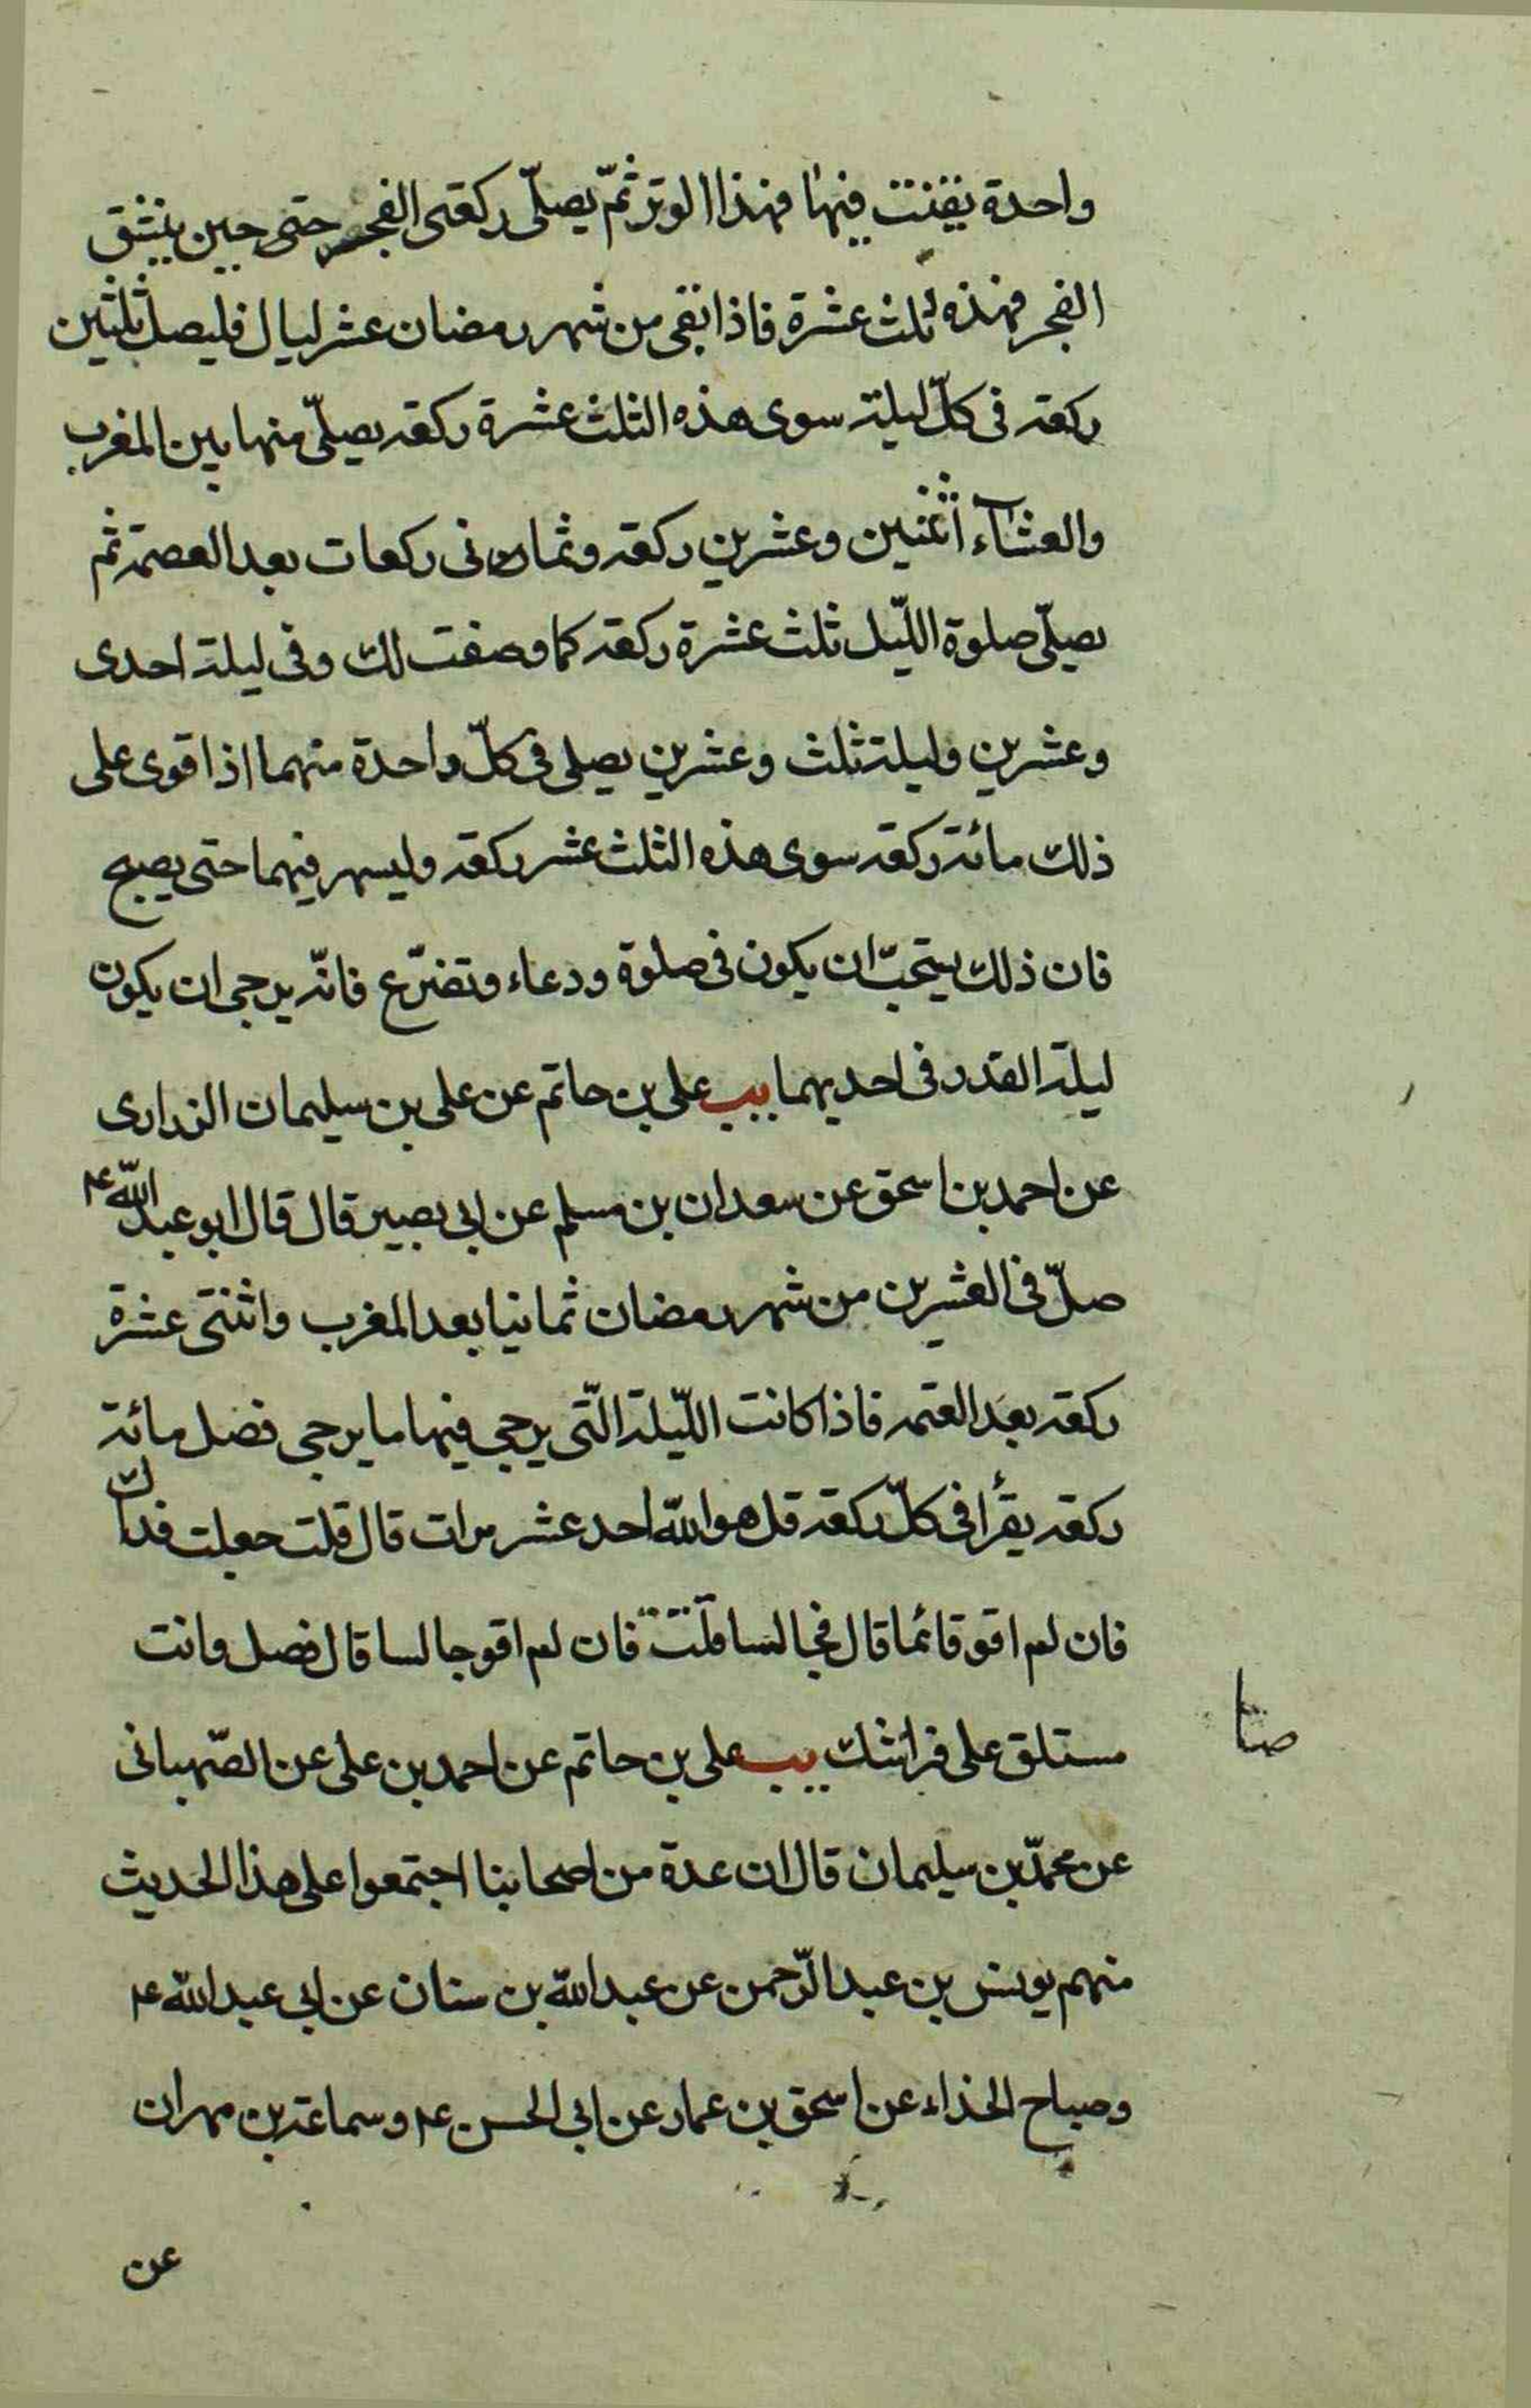 واحدة يقنت فيها فهذا الوتر ثمّ يصلّى ركعتى الفجر حتى حين ينشق
الفجر فهذه ثلث عشرة فاذا بقى من شهر رمضان عشر ليال فليصل ثلثين
ركعة فى كلّ ليلة سوى هذه الثلث عشرة ركعة يصلّى منها بين المغرب
والعشآء اثنين وعشرين ركعة وثمانى ركعات بعد العصمة ثم
يصلّى صلوة اللّيل ثلث عشرة ركعة كما وصفت لك وفى ليلة احدى
وعشرين وليلة ثلث وعشرين يصلى فى كلّ واحدة منهما اذا قوى على
ذلك مائة ركعة سوى هذه الثلث عشر ركعة وليسهر فيهما حتى يصبح
فان ذلك يستحبّ ان يكون فى صلوة ودعاء وتضرّع فانّه يرجى ان يكون
ليلة القدر فى احديهما يب على بن حاتم عن على بن سليمان الزرارى
عن احمد بن اسحق عن سعدان بن مسلم عن ابى بصير قال قال ابو عبد اللّه ع
صلّ فى العشرين من شهر رمضان ثمانيا بعد المغرب واثنتى عشرة
ركعة بعد العتمه فاذا كانت اللّيلة الّتى يرجى فيها ما يرجى فصل مائة
ركعة يقرأ فى كلّ ركعة قل هو اللّه احد عشر مرات قال قلت جعلت فداك
فان لم اقو قائما قال فجالسا قلت فان لم اقو جالسا قال فصل وانت
مستلق على فراشك يب على بن حاتم عن احمد بن على عن الصّهبانى
صا
عن محمّد بن سليمان قال ان عدة من اصحابنا اجتمعوا على هذا الحديث
منهم يونس بن عبد الرّحمن عن عبد اللّه بن سنان عن ابى عبد اللّه ع
وصباح الحذاء عن اسحق بن عمار عن ابى الحسن ع وسماعة بن مهران
عن